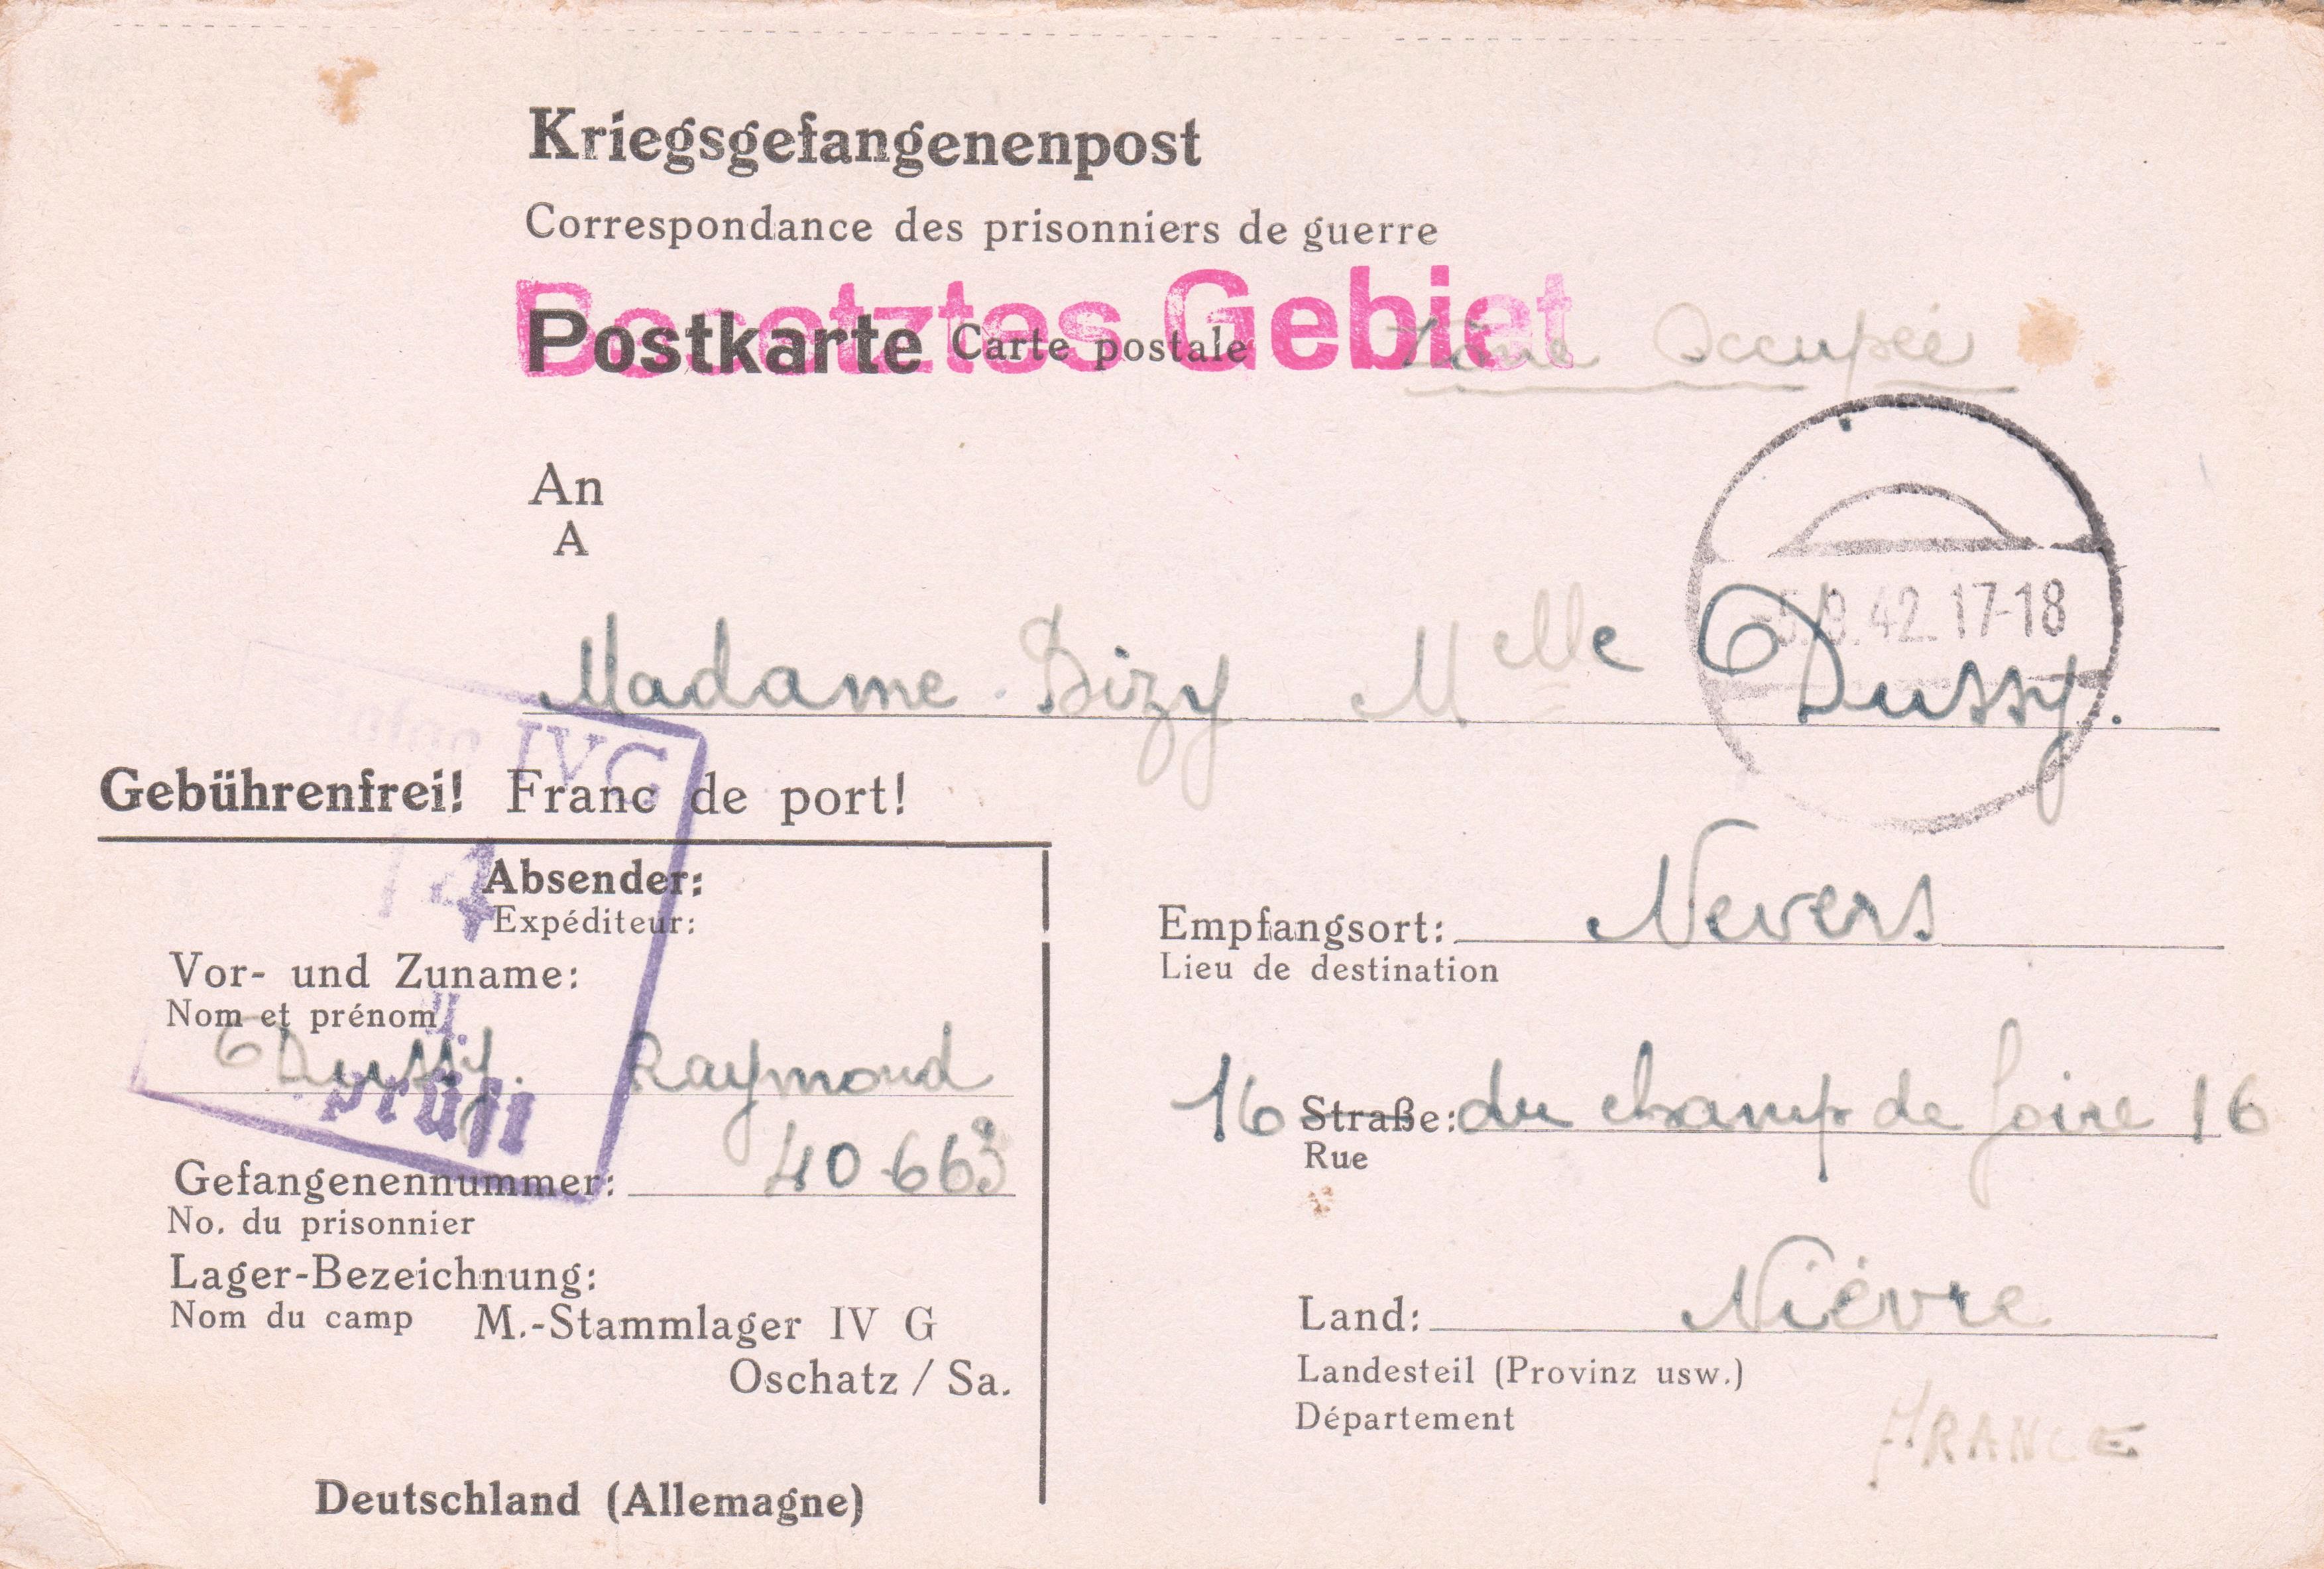 Kriegsgefangenenpost
Correspondance des prisonniers de guerre
Besetztes Gebiet
Postkarte Carte postale
Zône Occupée
An
A
5.9.42.17-18
Madame Bizy Melle Dussy.
IVG
Gebührenfrei! Franc de port!
14
Absender:
Expéditeur:
Vor- und Zuname:
Nom et prénom
Dussy. Raymond
prüft
Gefangenennummer: 40663
No. du prisonnier
Lager-Bezeichnung:
Nom du camp M.-Stammlager IV G
Oschatz / Sa.
Deutschland (Allemagne)
Empfangsort: Nevers
Lieu de destination
16 Straße: du champ de foire 16
Rue
Land: Nièvre
Landesteil (Provinz usw.)
Département
FRANCE